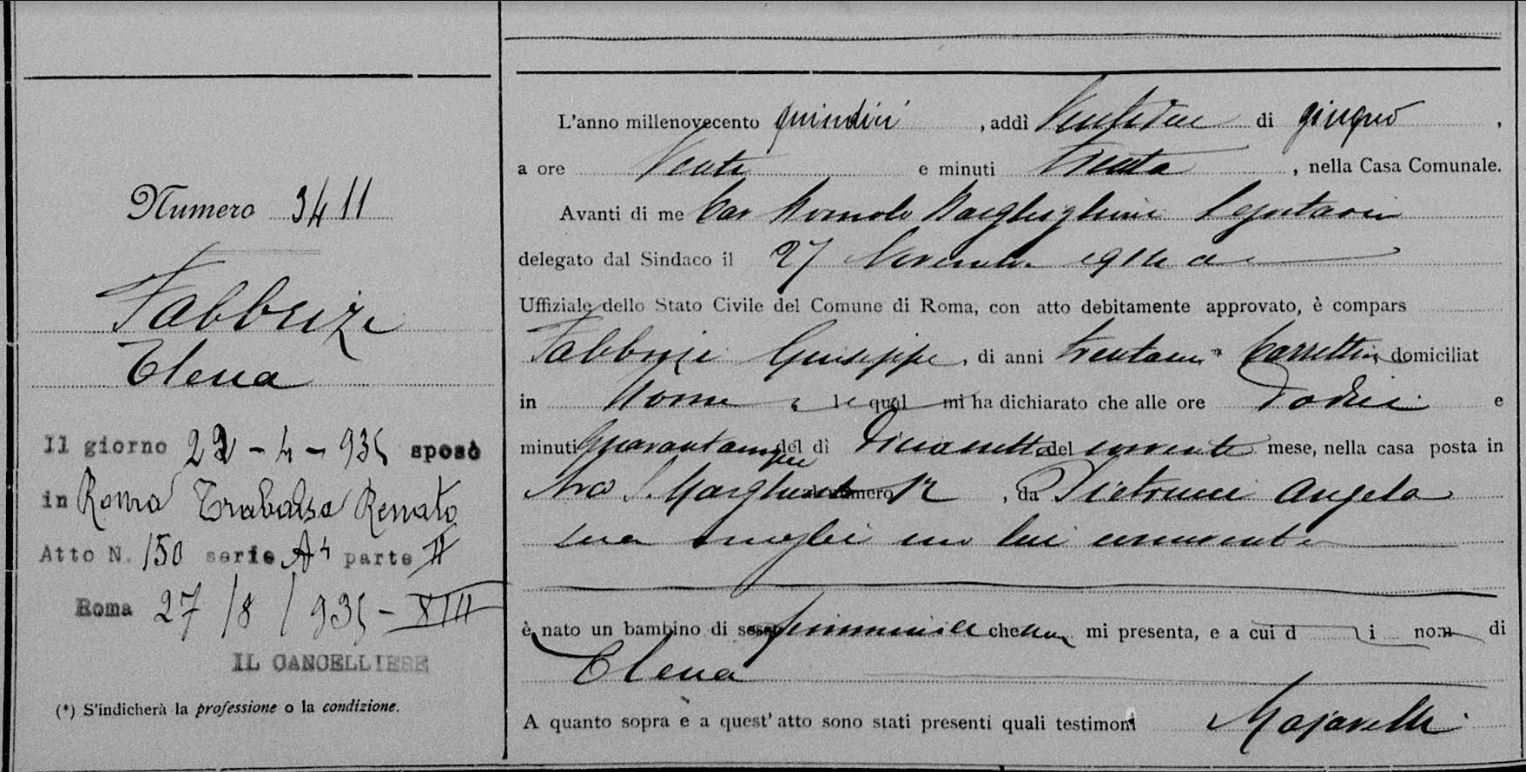 Numero 3411
Fabbrizi
Elena
Il giorno 22-4-935 sposò
in Roma Trabalsa Renato
Atto N. 150 serie A4 parte II
Roma 27/8/935-XIII
IL CANCELLIERE
(*) S'indicherà la professione o la condizione.
L'anno millenovecento quindici, addì Ventidue di giugno,
a ore Venti e minuti trenta, nella Casa Comunale.
Avanti di me Cav Romolo Segretario
delegato dal Sindaco il 27 Novembre 1914
Uffiziale dello Stato Civile del Comune di Roma, con atto debitamente approvato, è compars
Fabbrizi Giuseppe, di anni * Carrettiere domiciliat
in Roma le qual mi ha dichiarato che alle ore dodici e
minuti quarantacinque del dì diciassette del corrente mese, nella casa posta in
S. Margherita numero 12, da Pietrucci Angela
sua moglie con lui convivente
è nato un bambino di sesso femminile che mi presenta, e a cui d i nom di
Elena
A quanto sopra e a quest' atto sono stati presenti quali testimoni Majarelli